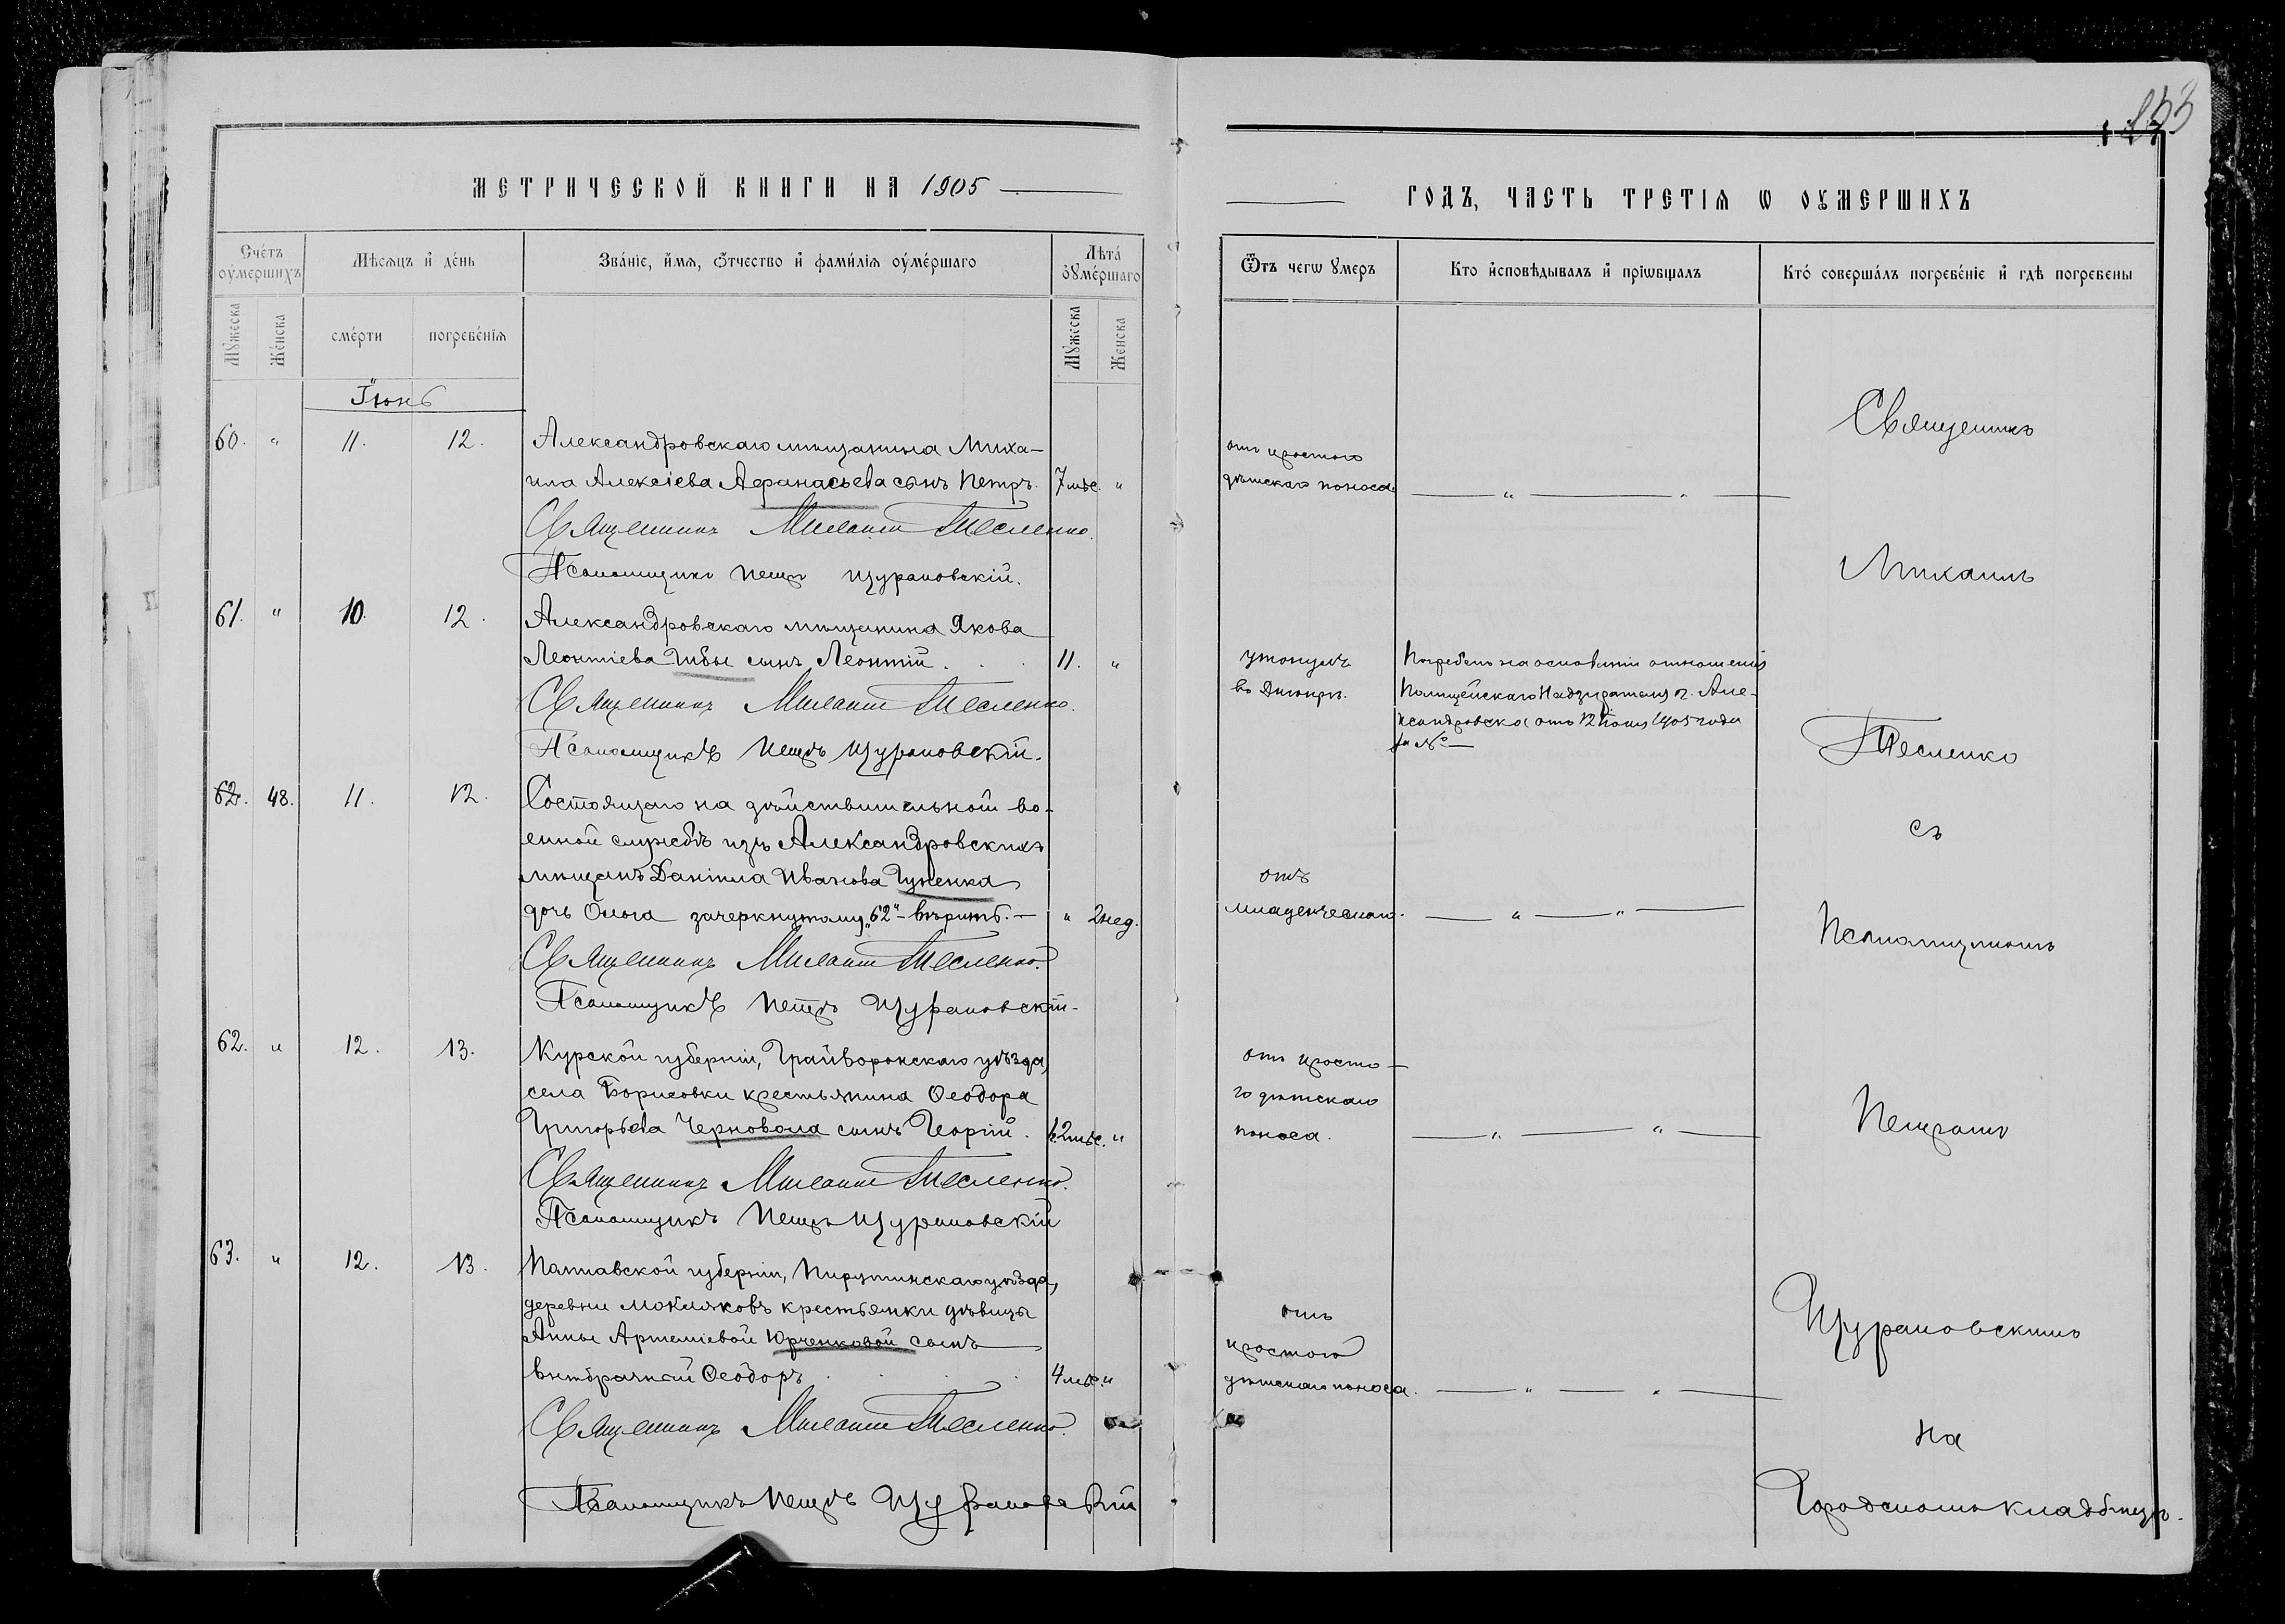 153
МЕТРИЧЕСКОЙ КНИГИ НА 1905
ГОДЪ, ЧАСТЬ ТРЕТІѦ Ѡ ОУМЕРШИХЪ
Сче́тъ оу҆ме́ршихъ
Мѣсѧцъ и҆ де́нь
Зва́ніе, и҆́мѧ, ѻ҆́тчество и҆ фами́лїѧ оу҆ме́ршаго
Лѣта́ оу҆ме́ршаго
Мꙋ́жеска
Же́нска
сме́рти
погребе́нїѧ
Мꙋ́жеска
Же́нска
Ѿ чегѡ ꙋмеръ
Кто и҆сповѣ́дывалъ и҆ прїѡбщалъ
Кто́ соверша́лъ погребе́ніе и҆ гдѣ погребены
Іюнь
60. " 11. 12.
Александровскаго мѣщанина Миха-
ила Алексіева Афанасьева сынъ Петръ. 7 мѣс. "
Священникъ Михаилъ Тесленко.
Псаломщикъ Петръ Щурановскій.
отъ простого
дѣтскаго поноса.
61. " 10. 12.
Александровскаго мѣщанина Якова
Леонтіева Шбы сынъ Леонтій . . . 11. "
Священникъ Михаилъ Тесленко.
Псаломщикъ Петръ Щурановскій.
утонулъ
въ Днѣпрѣ.
Погребенъ на основаніи отношенія
Полицейскаго Надзирателя г. Але-
ксандровска отъ 12 Іюня 1905 года
за № —
62. 48. 11. 12.
Состоящаго на дѣйствительной во-
енной службѣ изъ Александровскихъ
мѣщанъ Даніила Иванова Гуненка
дочь Ольга зачеркнутому „62" - вѣрить. — " 2 нед.
Священникъ Михаилъ Тесленко.
Псаломщикъ Петръ Щурановскій.
отъ
младенческаго.
62. " 12. 13.
Курской губерніи, Грайворонскаго уѣзда,
села Борисовки крестьянина Ѳеодора
Григорьева Черновола сынъ Георгій. 2 мѣс. "
Священникъ Михаилъ Тесленко.
Псаломщикъ Петръ Щурановскій
отъ просто-
го дѣтскаго
поноса.
63. " 12. 13.
Полтавской губерніи, Пирятинскаго уѣзда,
деревни Мокляковъ крестьянки дѣвицы
Анны Артеміевой Юрченковой сынъ
внѣбрачный Ѳеодоръ . . . . 4 мѣс. "
Священникъ Михаилъ Тесленко.
Псаломщикъ Петръ Щурановскій
отъ
простого
дѣтскаго поноса.
Священникъ
Михаилъ
Тесленко
съ
Псаломщикомъ
Петромъ
Щурановскимъ
на
Городскомъ кладбищѣ.